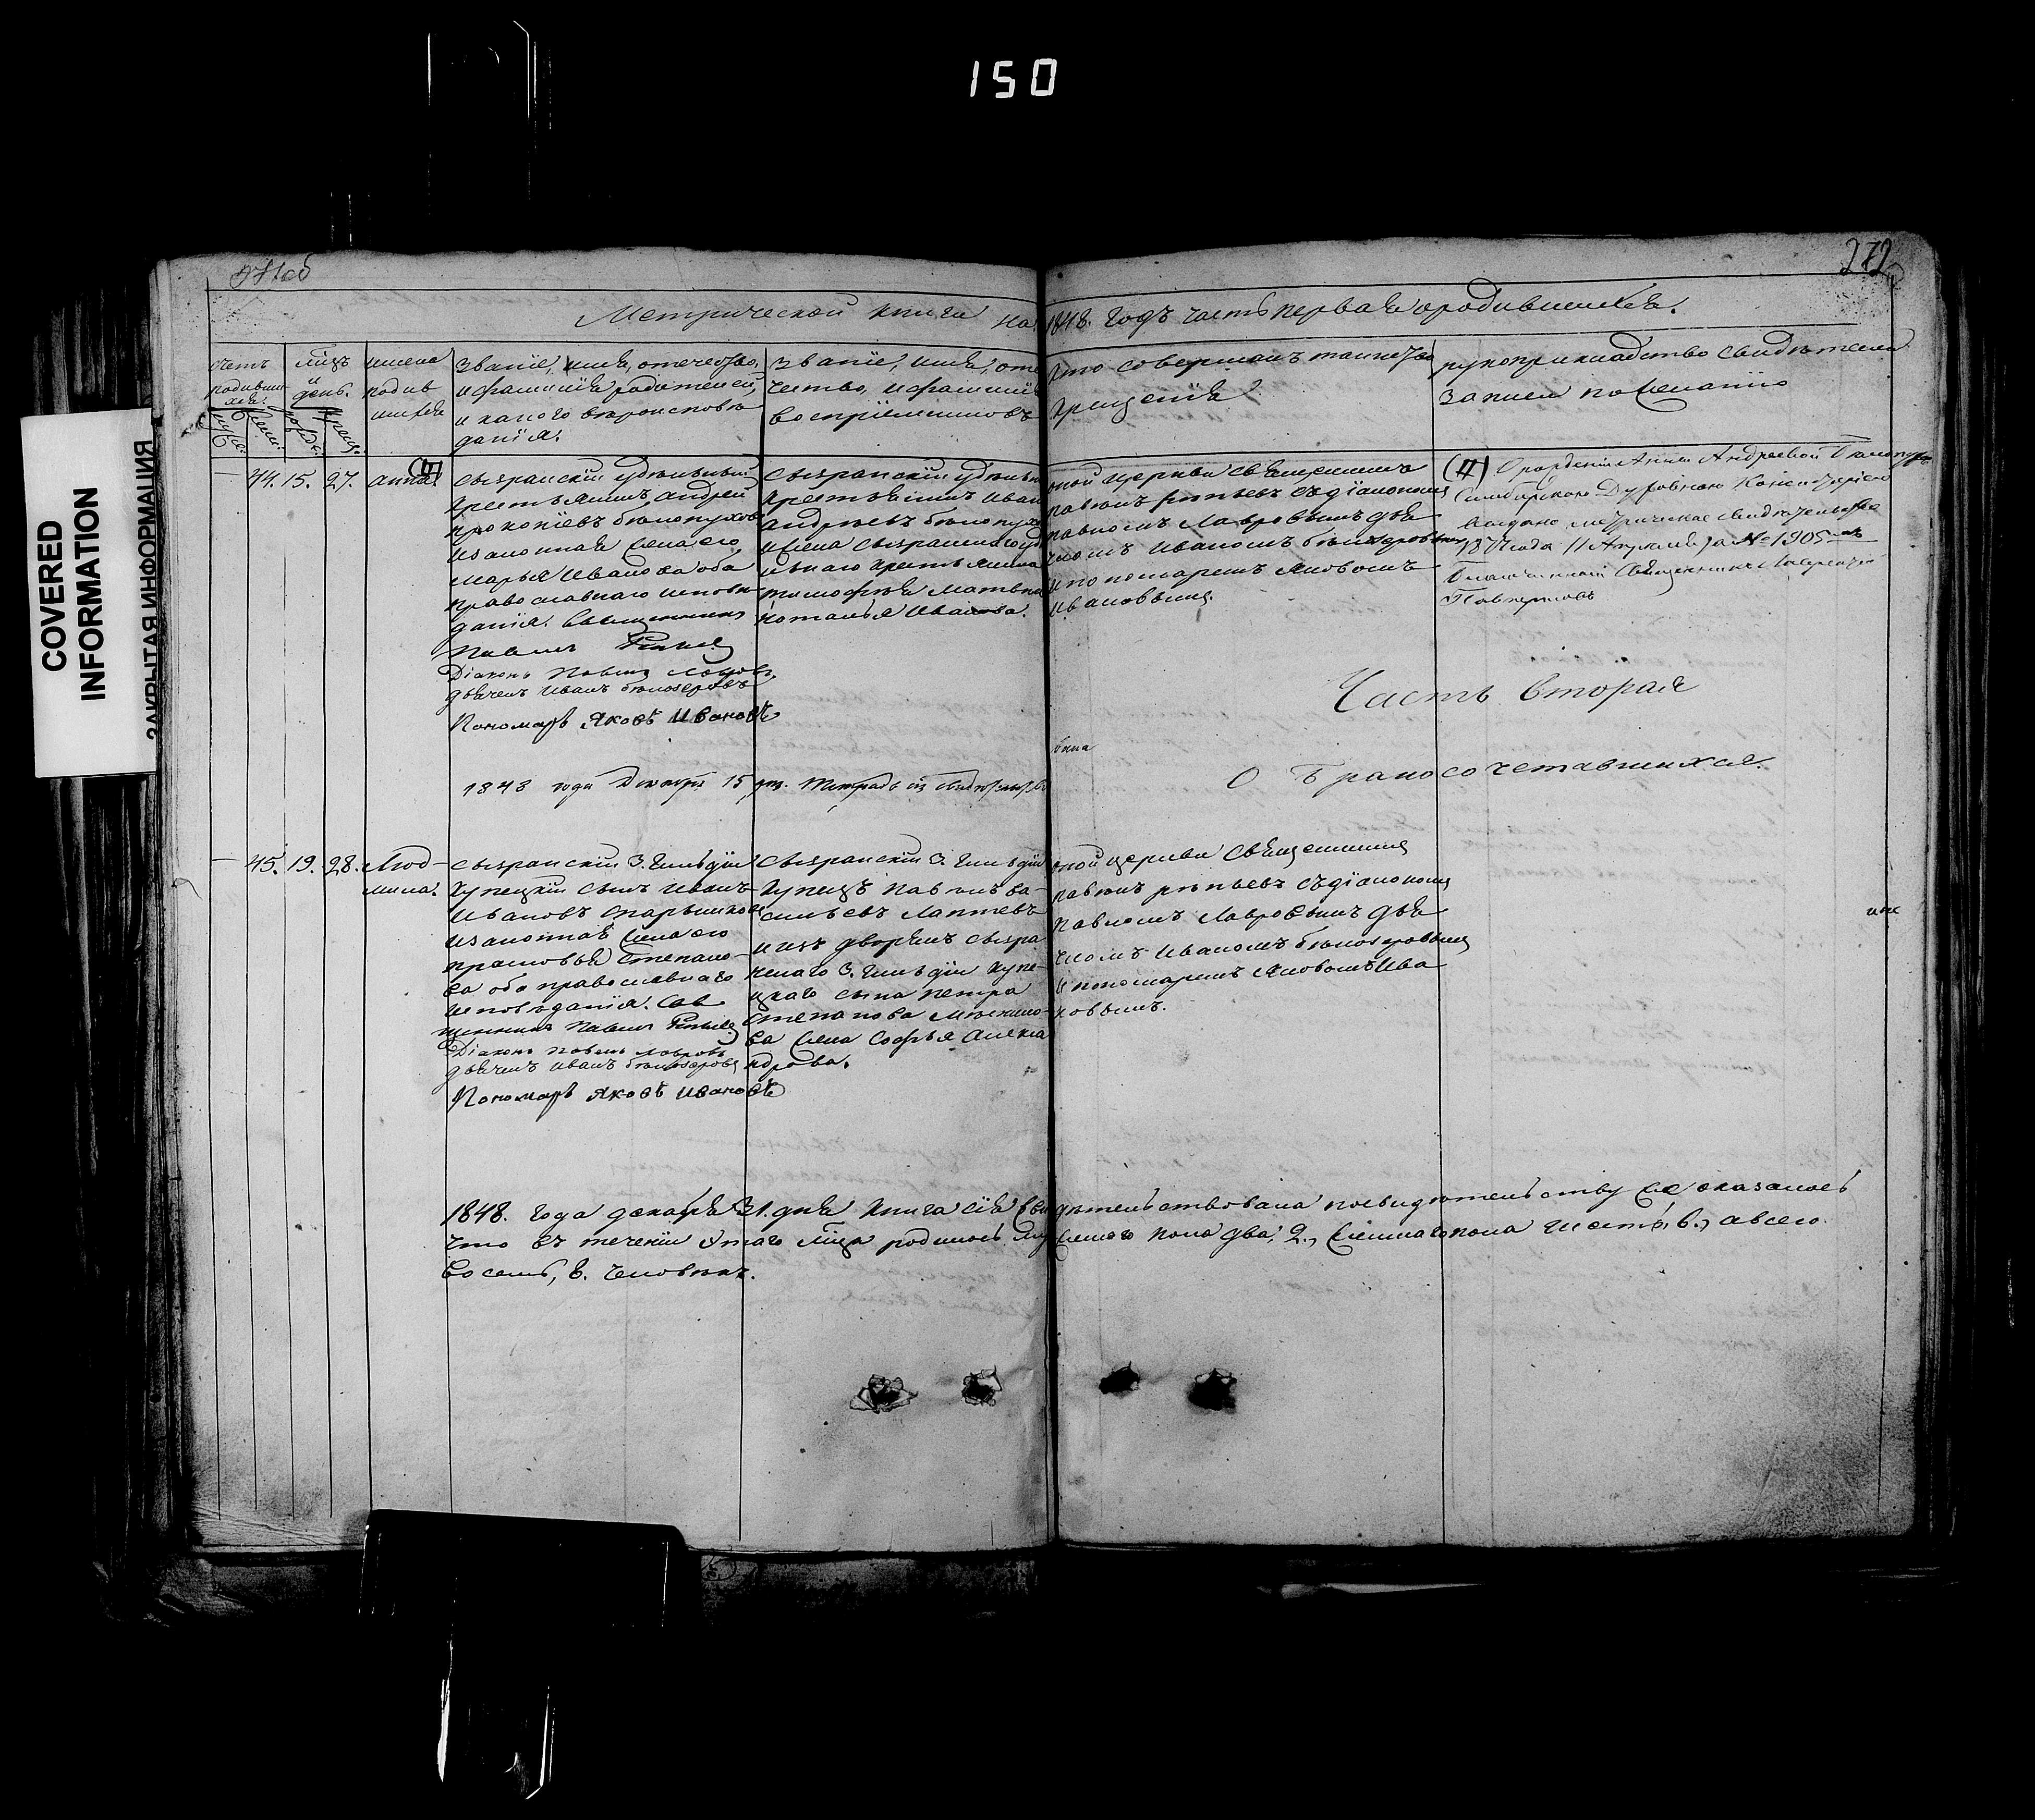 150
COVERED
INFORMATION
ЗАКРЫТАЯ ИНФОРМАЦИЯ
271об
272
Метрической книги на 1848. годъ часть первая о родившихся.
счетъ
родивших
ся.
мѣцъ
и
день.
имена
родив
шихся
Званіе, имя, отечество,
и фамилія родителей,
и какого вѣроисповѣ
данія.
Званіе, имя, оте
чество, и фамилія
воспріемниковъ
Кто совершалъ таинство
крещенія
рукоприкладство свидѣтелей
записи по желанію
44. 15. 27. Анна.
Сызранскій удѣльный
крестьянинъ Андрей
Прокопіевъ Бѣлопухов
и законная жена его
Марья Иванова оба
православнаго исповѣ
данія. Священникъ
Павелъ
Діаконъ Павелъ Лавровъ
дьячекъ Иванъ Бѣлозеровъ
Пономарь Яковъ Ивановъ
Сызранскій удѣльн
крестьянинъ Иван
Андреевъ Бѣлопухо
и жена Сызранскаго уд
ѣльнаго крестьянина
Тимофѣя Матвѣе
Наталья Иванова.
оной церкви Священникъ
Павелъ съ діакономъ
Павломъ Лавровымъ дья
чкомъ Иваномъ Бѣлозеровымъ
и пономаремъ Яковомъ
Ивановымъ.
(II) О рожденіи Анны Андреевой
Симбирскою Духовною Консисторіею
выдано метрическое свидѣтельство
1877 года 11 Апрѣля за № 1905
Священникъ
Часть вторая
О Бракосочетавшихся.
1848 года Декабря 15
45. 19. 28. Люд-
мила.
Сызранскій 3. гильдіи
купецкій сынъ Иванъ
Ивановъ
и законная жена его
Прасковья Степано-
ва оба православнаго
исповѣданія. Свя
щенникъ Павелъ
Діаконъ Павелъ Лавровъ
дьячекъ Иванъ Бѣлозеровъ
Пономарь Яковъ Ивановъ
Сызранскій 3. гильдіи
купецъ Павелъ Ва-
сильевъ Лаптевъ
и изъ дворянъ Сызра
нскаго 3. гильдіи купе-
цкаго сына Петра
Степанова
ва жена Софья Алекса
ндрова.
оной церкви Священникъ
Павелъ съ діакономъ
Павломъ Лавровымъ дья
чкомъ Иваномъ Бѣлозеровымъ
и пономаремъ Яковомъ Ива
новымъ.
1848. года декабря 31. дня книга сія свидѣтельствована по свидѣтельству же оказалось
что въ теченіи этаго мѣца родилось мужескаго пола два, 2., женскаго пола шесть, 6., а всего
восемь, 8. человѣкъ.